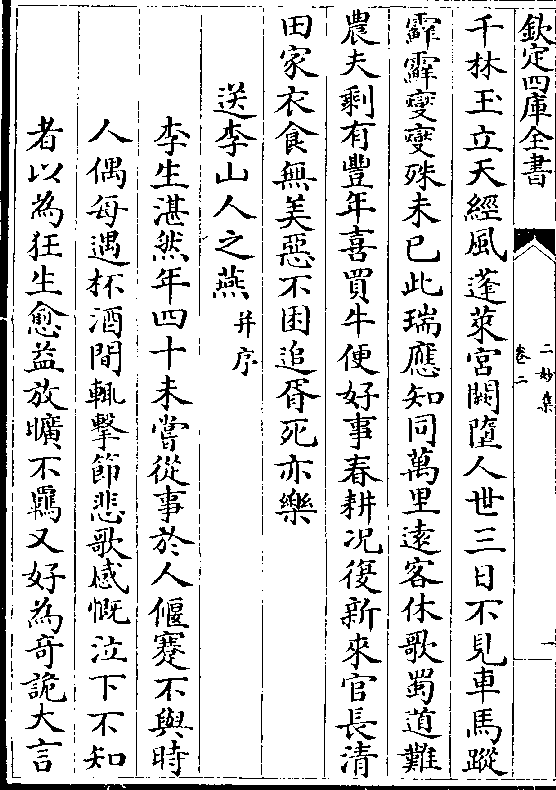 欽定四庫全書
二妙集
卷二
一
千林玉立天經風蓬萊宮闕墮人世三日不見車馬蹤
霏霏變變殊未已此瑞應知同萬里遠客休歌蜀道難
農夫剩有豐年喜買牛便好事春耕况復新來官長清
田家衣食無美惡不困追胥死亦樂
送李山人之燕并序
李生湛然年四十未嘗從事於人偃蹇不與時
人偶每遇杯酒間輒擊節悲歌感慨泣下不知
者以為狂生愈益放曠不羈又好為奇詭大言